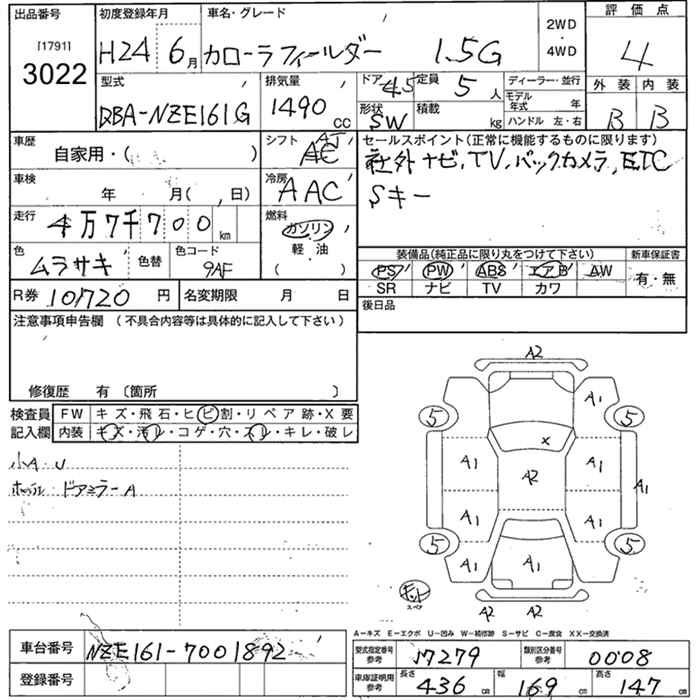 出品番号 初度登録年月 車名・グレード 評価点
[1791]
3022
H24 6月 カローラフィールダー 1.5G 2WD・4WD 4
型式 排気量 ドア 4.5 定員 5人 ディーラー・並行 外装 内装
DBA-NZE161G 1490 CC 形状 SW 積載 kg モデル年式 年 B B
ハンドル 左・右
車歴 自家用・( ) シフト AT セールスポイント(正常に機能するものに限ります)
社外ナビ,TV,バックカメラ,ETC
車検 年 月( , 日) 冷房 AAC Sキー
走行 4万7千700km 燃料 ガソリン
軽・油
( )
色 ムラサキ 色替 色コード 9AF
装備品(純正品に限り丸をつけて下さい) 新車保証書
PS PW ABS エアB AW 有・無
SR ナビ TV カワ
R券 10720円 名変期限 月 日 後日品
注意事項申告欄 (不具合内容等は具体的に記入して下さい)
修復歴 有 〔箇所 〕
検査員 FW キズ・飛石・ヒビ割・リペア跡・X要
記入欄 内装 キズ・汚レ・コゲ・穴・スレ・キレ・破レ
小A・U
ドアミラーA
A2
A1
5 5
X
A1 A2 A1 A1
A1 A1
5 A1 5
キット
スペア
A2 A2
A-キズ E-エクボ U-凹み W-補修跡 S-サビ C-腐食 XX-交換済
車台番号 NZE161-7001892
登録番号
型式指定番号 参考 17279 類別区分番号 参考 0008
車庫証明用 参考 長さ 436cm 幅 169cm 高さ 147cm